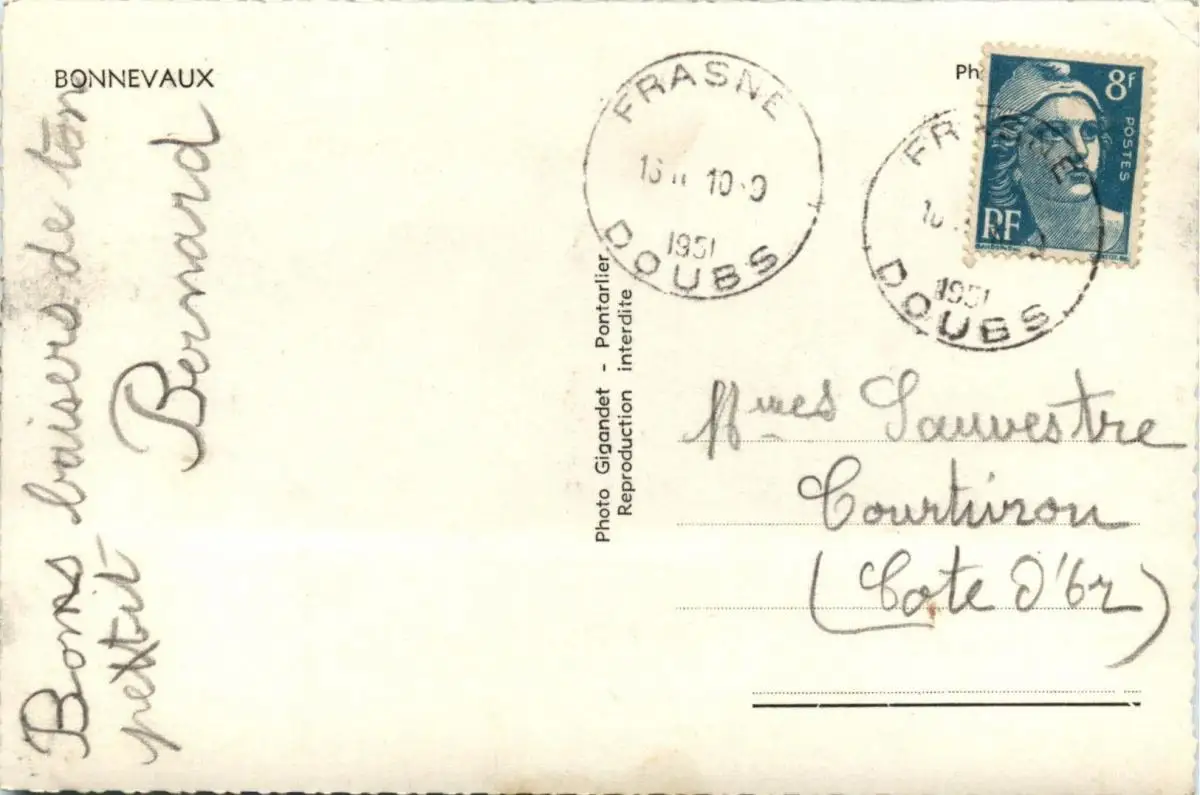 BONNEVAUX
Bons baisers de ton
petit Bernard
Photo Gigandet - Pontarlier
Reproduction interdite
FRASNE
10
1951
DOUBS
Ph
8f
POSTES
RF
FRASNE
1951
DOUBS
Mmes Sauvestre
Courtivron
(Cote d'Or)